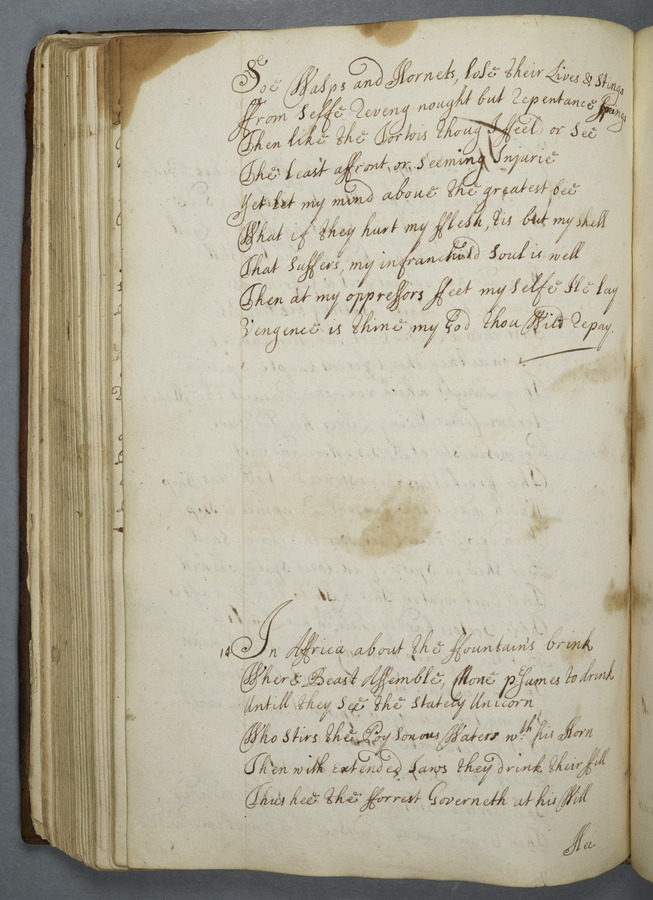 Soe Wasps and Hornets, lose their Lives & Stings
From Selfe Reveng nought but Repentance Springs
Then like the Tortois thoug I feel or See
The Least affront, or Seeming Injurie
Yet let my mind aboue the greatest bee
What if they hurt my fflesh, tis but my shell
That Suffers, my infranchisd Soul is well
Then at my oppressors ffeet my Selfe Ile lay
Vengence is thine my God thou Wilt Repay.
14 In Affrica about the ffountain's brink
Where Beast Assemble, None p'sumes to drink
Untill they See the Stately Unicorn
Who Stirs the Poysonous Waters wth his Horn
Then with extended Jaws they drink their ffill
Thus hee the fforrest Governeth at his Will